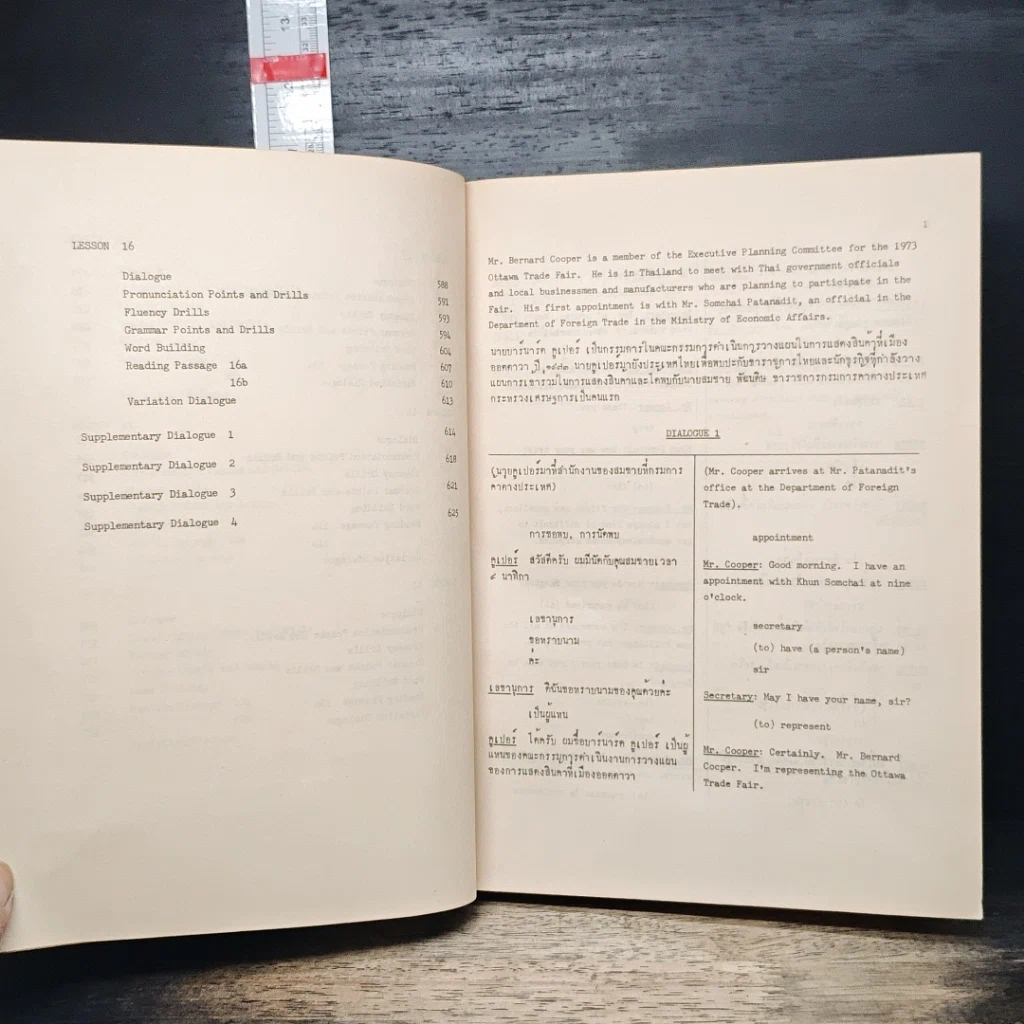 LESSON 16
Dialogue 588
Pronunciation Points and Drills 591
Fluency Drills 593
Grammar Points and Drills 594
Word Building 604
Reading Passage 16a 607
16b 610
Variation Dialogue 613
Supplementary Dialogue 1 614
Supplementary Dialogue 2 618
Supplementary Dialogue 3 621
Supplementary Dialogue 4 625
1
Mr. Bernard Cooper is a member of the Executive Planning Committee for the 1973
Ottawa Trade Fair. He is in Thailand to meet with Thai government officials
and local businessmen and manufacturers who are planning to participate in the
Fair. His first appointment is with Mr. Somchai Patanadit, an official in the
Department of Foreign Trade in the Ministry of Economic Affairs.
นายบาร์นาร์ด คูเปอร์ เป็นกรรมการในคณะกรรมการดำเนินการวางแผนในการแสดงสินค้าที่เมือง
ออตตาวา ปี ๑๙๗๓ นายคูเปอร์มายังประเทศไทยเพื่อพบปะกับข้าราชการไทยและนักธุรกิจที่กำลังวาง
แผนการเข้าร่วมในการแสดงสินค้าและได้พบกับนายสมชาย พัฒนดิษ ข้าราชการกรมการค้าต่างประเทศ
กระทรวงเศรษฐการเป็นคนแรก
DIALOGUE 1
(นายคูเปอร์มาที่สำนักงานของสมชายที่กรมการ
ค้าต่างประเทศ)
การขอพบ, การนัดพบ
คูเปอร์ สวัสดีครับ ผมมีนัดกับคุณสมชายเวลา
๙ นาฬิกา
เลขานุการ
ขอทราบนาม
ค่ะ
เลขานุการ ดิฉันขอทราบนามของคุณด้วยค่ะ
เป็นผู้แทน
คูเปอร์ ได้ครับ ผมชื่อบาร์นาร์ด คูเปอร์ เป็นผู้
แทนของคณะกรรมการดำเนินงานการวางแผน
ของการแสดงสินค้าที่เมืองออตตาวา
(Mr. Cooper arrives at Mr. Patanadit's
office at the Department of Foreign
Trade).
appointment
Mr. Cooper: Good morning. I have an
appointment with Khun Somchai at nine
o'clock.
secretary
(to) have (a person's name)
sir
Secretary: May I have your name, sir?
(to) represent
Mr. Cooper: Certainly. Mr. Bernard
Cooper. I'm representing the Ottawa
Trade Fair.